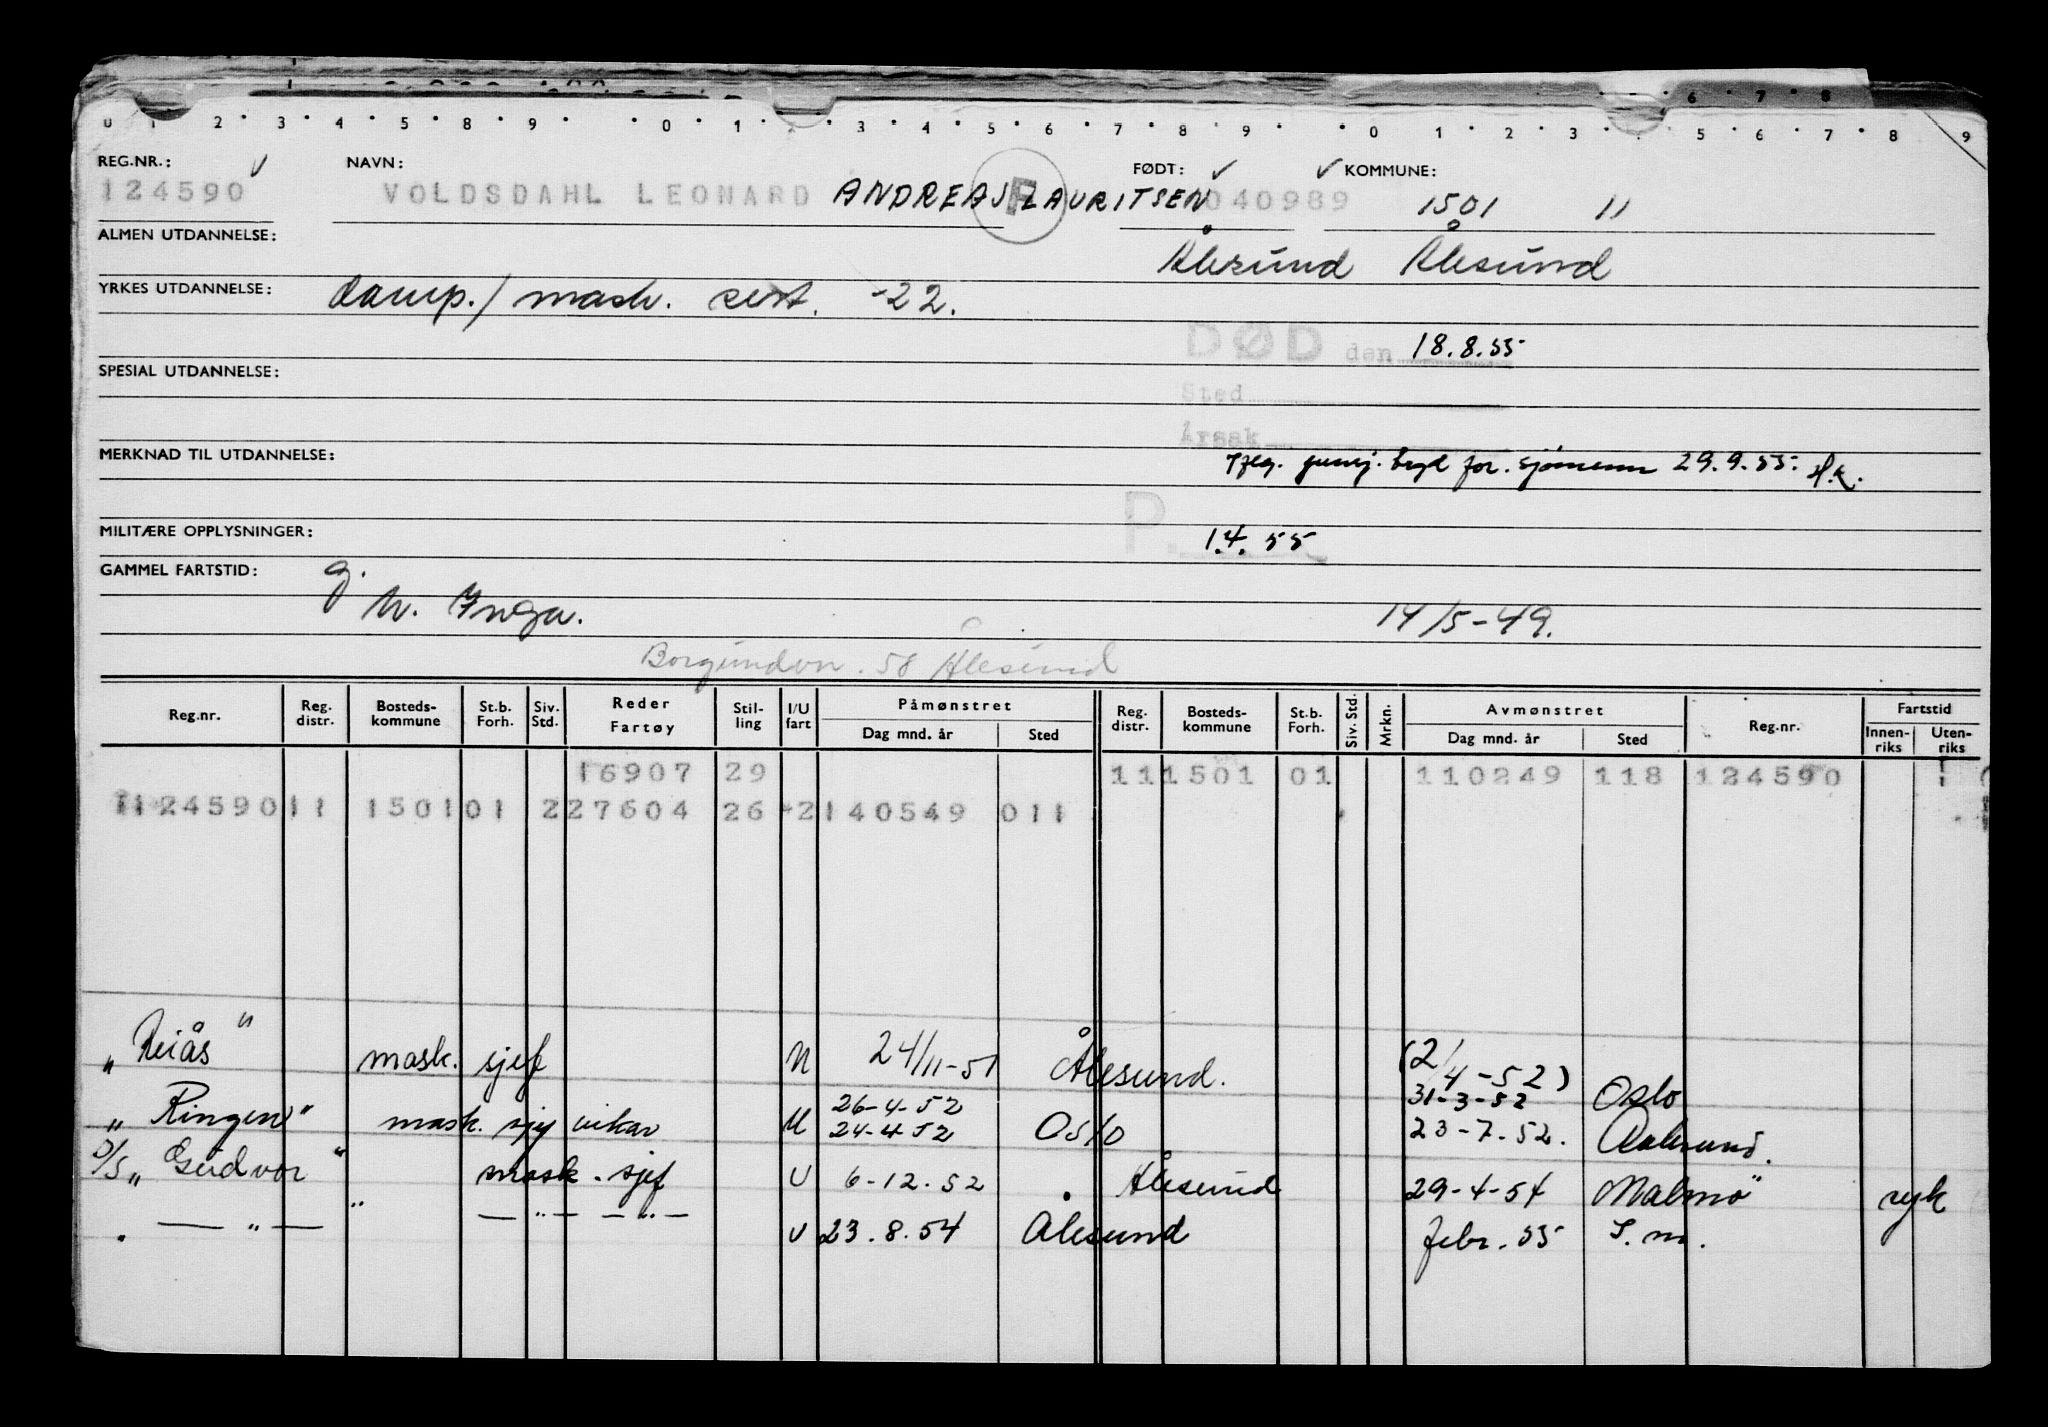 0 1 2 3 4 5 6 8 9 0 1 2 3 4 5 6 7 8 9 0 1 2 3 5 6 7 8 9
REG.NR.: NAVN: FØDT: KOMMUNE:
124590 VOLDSDAHL LEONARD ANDREAS LAURITSEN 040989 1501 11
ALMEN UTDANNELSE: Ålesund Ålesund
YRKES UTDANNELSE: damp./mask. sert. -22.
DØD den 18.8.55
SPESIAL UTDANNELSE:
Sted
Årsak
MERKNAD TIL UTDANNELSE: for. sjømenn 29.9.55. H.K.
MILITÆRE OPPLYSNINGER: P. 1.4.55
GAMMEL FARTSTID: g.
N. Inga. 14/5-49.
Borgundvn. 58 Ålesund
Reg.nr. Reg. distr. Bosteds-kommune St.b. Forh. Siv. Std. Reder Fartøy Stil-ling I/U fart Påmønstret Dag mnd. år Sted Reg. distr. Bosteds-kommune St.b. Forh. Siv. Std. Mrkn. Avmønstret Dag mnd. år Sted Reg.nr. Fartstid Innen-riks Uten-riks
16907 29 11 1501 01 110249 118 124590
124590 11 1501 01 2 27604 26 2 140549 011
"Reiås" mask. sjef U 24/11-51 Ålesund. (2/4-52)
31-3-52 Oslo
26-4-52
"Ringen" mask. sjef vikar U 24-4-52 Oslo 23-7-52. Aalesund.
D/S "Gudvor" mask. sjef U 6-12-52 Ålesund 29-4-54 Malmö syk
— " — — " — — " — U 23.8.54 Ålesund febr. 55 S.m.